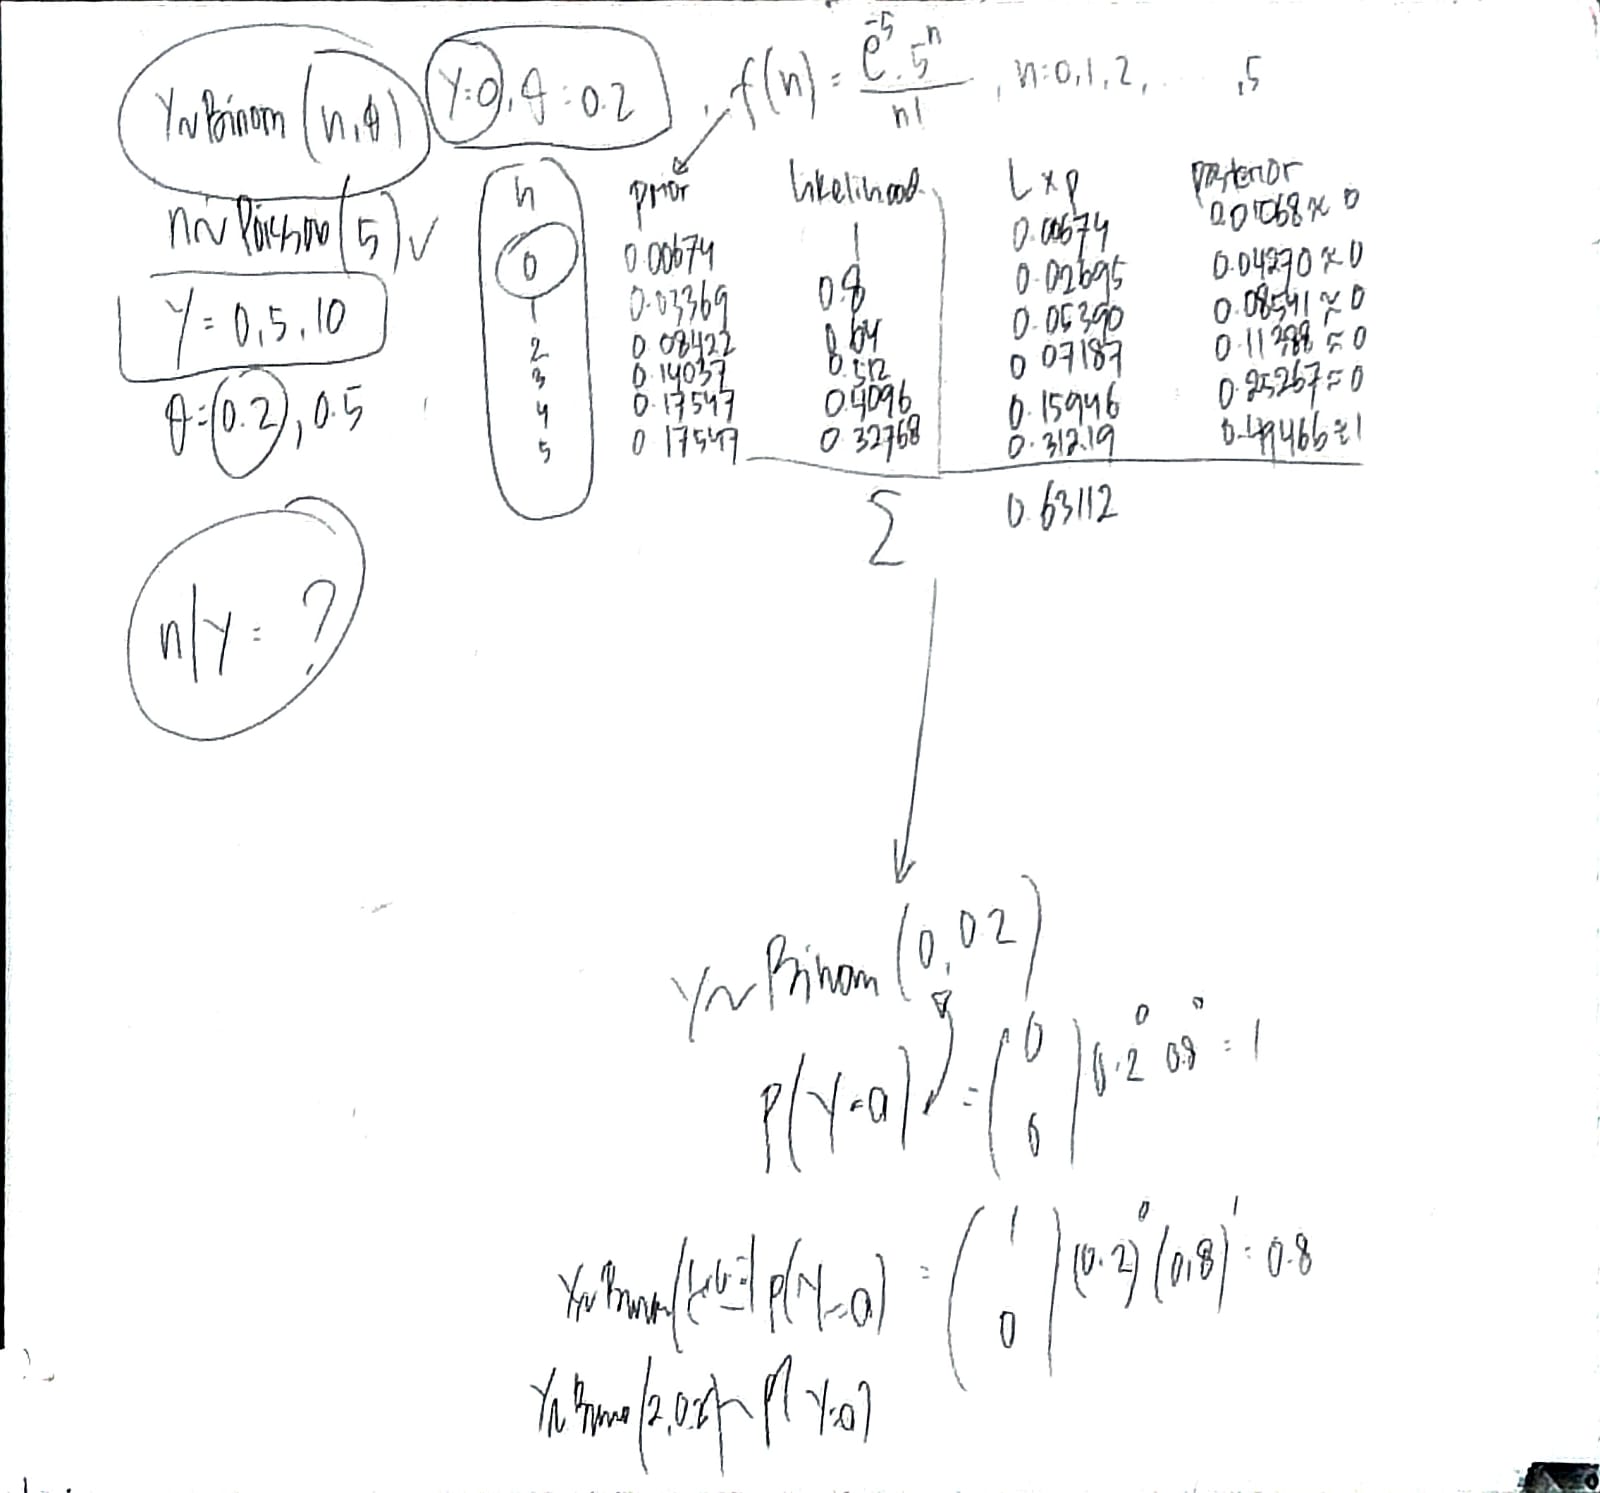 Y~Binom (n,θ)
Y=0, θ=0.2, f(n) = e^-5 . 5^n / n! , n=0,1,2, ... ,5
n~Poisson(5) ✓
Y = 0,5,10
θ = 0.2, 0.5
n prior Likelihood L x p posterior
0 0.00674 1 0.00674 0.01068 ≈ 0
1 0.03369 0.8 0.02695 0.04270 ≈ 0
2 0.08422 0.64 0.05390 0.08541 ≈ 0
3 0.14037 0.512 0.07187 0.11388 ≈ 0
4 0.17547 0.4096 0.15946 0.25267 ≈ 0
5 0.17547 0.32768 0.31219 0.49466 ≈ 1
Σ 0.63112
n|Y = ?
Y~Binom (0,0.2)
P(Y=0) = (0 0) 0.2^0 0.8^0 = 1
Y~Binom P(Y=0) = (1 0) (0.2)^0 (0.8)^1 = 0.8
Y~Binom (2,0.2) P(Y=0)